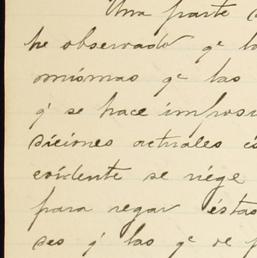 Una parte
he observado qe l
mismas qe las
q' se hace impos
diciones actuales
evidente se riege
para regar éstas
ces q' las qe de p